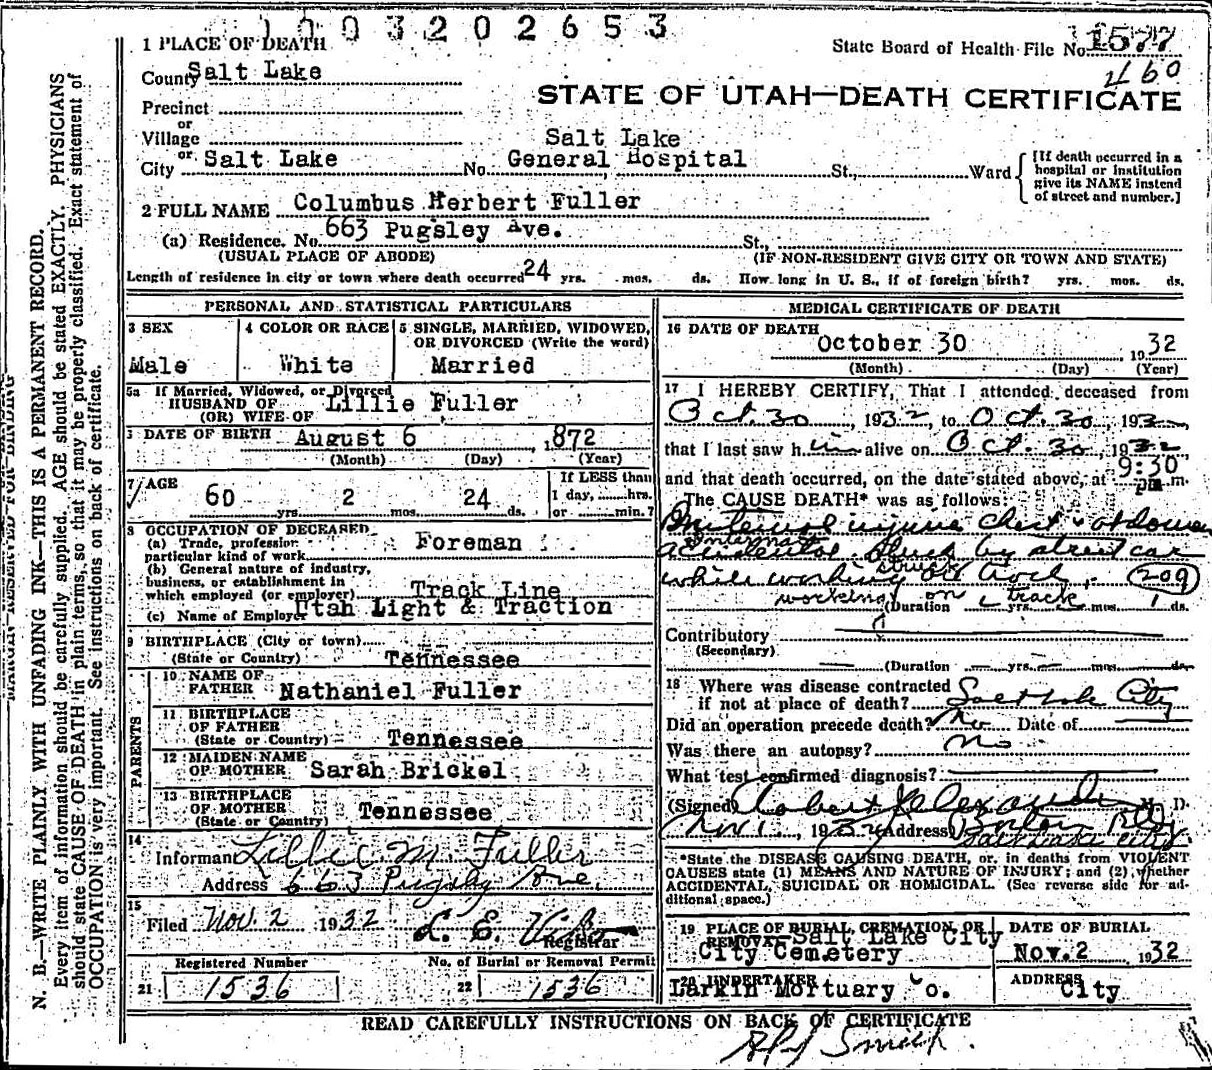 1003202653
1 PLACE OF DEATH
State Board of Health File No. 1577
County Salt Lake
460
STATE OF UTAH—DEATH CERTIFICATE
Precinct
or
Village
Salt Lake
City or Salt Lake No. General Hospital St., Ward
[If death occurred in a hospital or institution give its NAME instead of street and number.]
2 FULL NAME Columbus Herbert Fuller
(a) Residence. No. 663 Pugsley Ave. St.,
(USUAL PLACE OF ABODE) (IF NON-RESIDENT GIVE CITY OR TOWN AND STATE)
Length of residence in city or town where death occurred 24 yrs. mos. ds. How long in U. S., if of foreign birth? yrs. mos. ds.
PERSONAL AND STATISTICAL PARTICULARS
3 SEX 4 COLOR OR RACE 5 SINGLE, MARRIED, WIDOWED,
OR DIVORCED (Write the word)
Male White Married
5a If Married, Widowed, or Divorced
HUSBAND OF
(OR) WIFE OF Lillie Fuller
DATE OF BIRTH August 6 ,872
(Month) (Day) (Year)
7 AGE 60 yrs. 2 mos. 24 ds.
If LESS than
1 day, hrs.
or min.?
8 OCCUPATION OF DECEASED
(a) Trade, profession
particular kind of work Foreman
(b) General nature of industry,
business, or establishment in
which employed (or employer) Track Line
(c) Name of Employer Utah Light & Traction
9 BIRTHPLACE (City or town)
(State or Country) Tennessee
PARENTS
10 NAME OF
FATHER Nathaniel Fuller
11 BIRTHPLACE
OF FATHER
(State or Country) Tennessee
12 MAIDEN NAME
OF MOTHER Sarah Brickel
13 BIRTHPLACE
OF MOTHER
(State or Country) Tennessee
14
Informant Lillie M. Fuller
Address 663 Pugsley Ave.
15
Filed Nov. 2 1932 L. E.
Registrar
Registered Number No. of Burial or Removal Permit
21 1536 22 1536
MEDICAL CERTIFICATE OF DEATH
16 DATE OF DEATH
October 30 1932
(Month) (Day) (Year)
17 I HEREBY CERTIFY, That I attended deceased from
Oct. 30, 1932, to Oct. 30, 1932,
that I last saw him alive on Oct. 30, 1932
and that death occurred, on the date stated above, at 9:30 pm m.
The CAUSE DEATH* was as follows:
injuries chest &
Internal
accidental struck by street car
struck
while working on track. 209
working on track
(Duration yrs. mos. 1 ds.
Contributory
(Secondary)
(Duration yrs. mos. ds.
18 Where was disease contracted
if not at place of death? Salt Lake City
Did an operation precede death? No Date of
Was there an autopsy? No
What test confirmed diagnosis?
(Signed) Robert Alexander M. D.
Nov 1, 1932 (Address) Boston Bldg
Salt Lake City.
*State the DISEASE CAUSING DEATH, or, in deaths from VIOLENT
CAUSES state (1) MEANS AND NATURE OF INJURY; and (2) whether
ACCIDENTAL, SUICIDAL OR HOMICIDAL. (See reverse side for ad-
ditional space.)
19 PLACE OF BURIAL, CREMATION, OR
REMOVAL Salt Lake City
City Cemetery
DATE OF BURIAL
Nov. 2 1932
20 UNDERTAKER
Larkin Mortuary Co.
ADDRESS
City
READ CAREFULLY INSTRUCTIONS ON BACK OF CERTIFICATE
Smith.
MARGIN RESERVED FOR BINDING
N. B.—WRITE PLAINLY WITH UNFADING INK—THIS IS A PERMANENT RECORD.
Every item of information should be carefully supplied. AGE should be stated EXACTLY. PHYSICIANS
should state CAUSE OF DEATH in plain terms, so that it may be properly classified. Exact statement of
OCCUPATION is very important. See instructions on back of certificate.